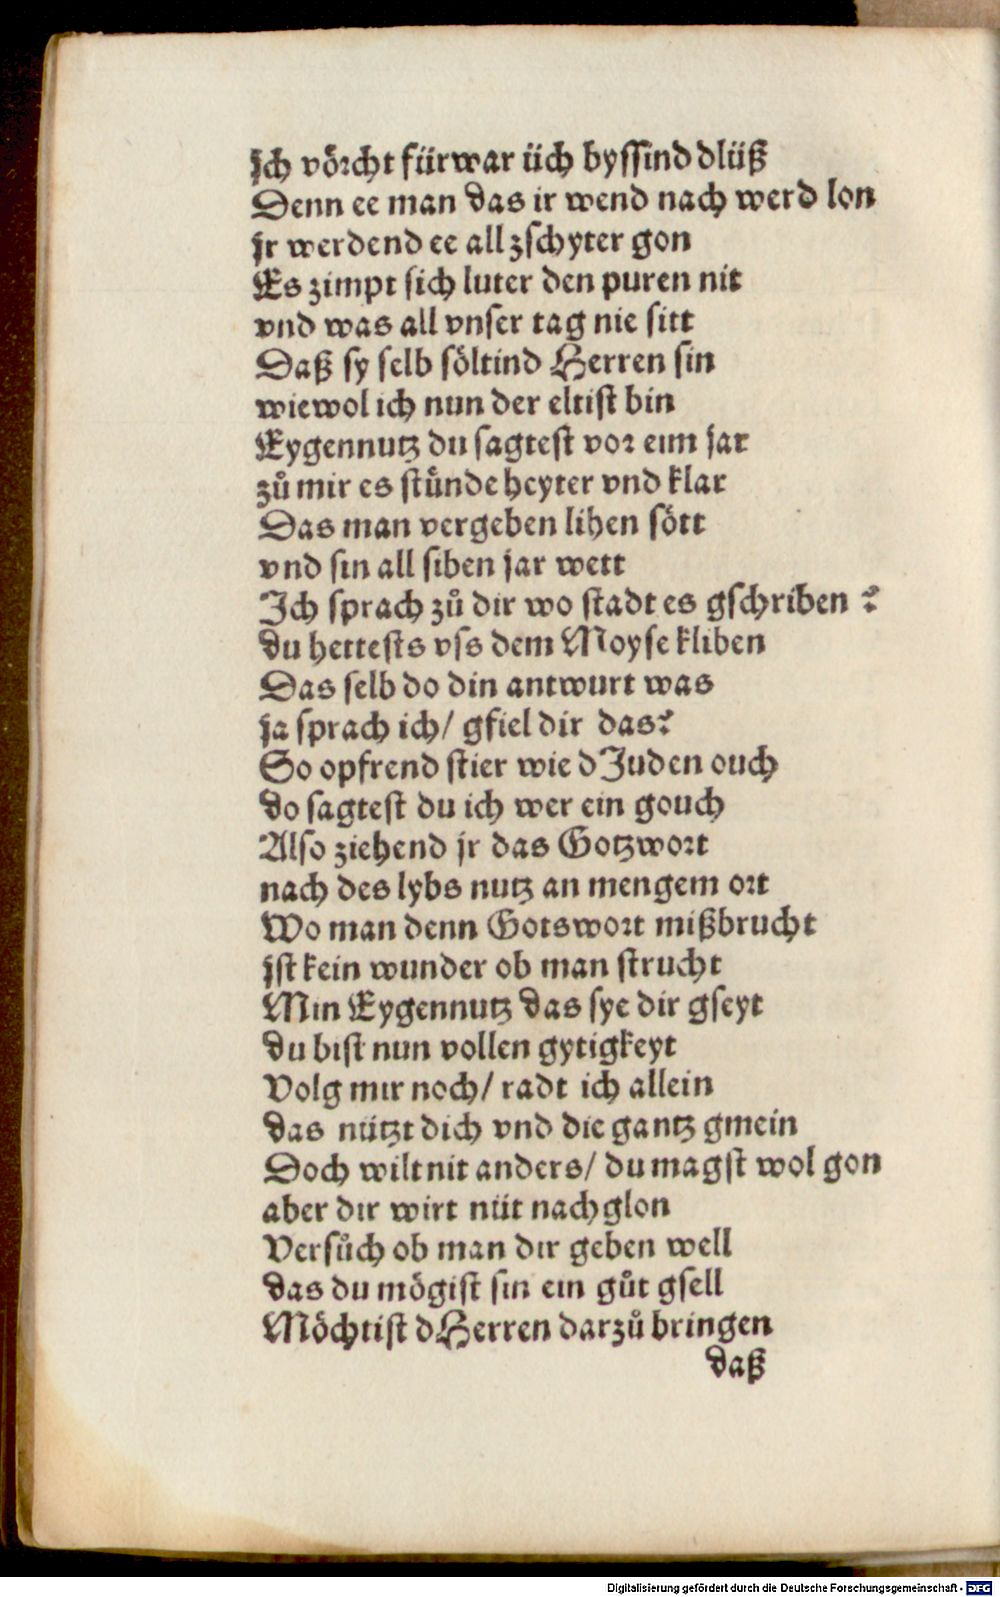 jch vörcht fürwar üch byssind dlüß
Denn ee man das ir wend nach werd lon
jr werdend ee all zschyter gon
Es zimpt sich luter den puren nit
vnd was all vnser tag nie sitt
Daß sy selb söltind Herren sin
wiewol ich nun der eltist bin
Eygennutz du sagtest vor eim jar
zů mir es stünde heyter vnd klar
Das man vergeben lihen sött
vnd sin all siben jar wett
Ich sprach zů dir wo stadt es gschriben ?
du hettests vss dem Moyse kliben
Das selb do din antwurt was
ja sprach ich/ gfiel dir das?
So opfrend stier wie dJuden ouch
do sagtest du ich wer ein gouch
Also ziehend jr das Gotzwort
nach des lybs nutz an mengem ort
Wo man denn Gotswort mißbrucht
jst kein wunder ob man strucht
Min Eygennutz das sye dir gseyt
du bist nun vollen gytigkeyt
Volg mir noch/ radt ich allein
das nützt dich vnd die gantz gmein
Doch wilt nit anders/ du magst wol gon
aber dir wirt nüt nach glon
Versůch ob man dir geben well
das du mögist sin ein gůt gsell
Möchtist dHerren darzů bringen
daß
Digitalisierung gefördert durch die Deutsche Forschungsgemeinschaft - DFG